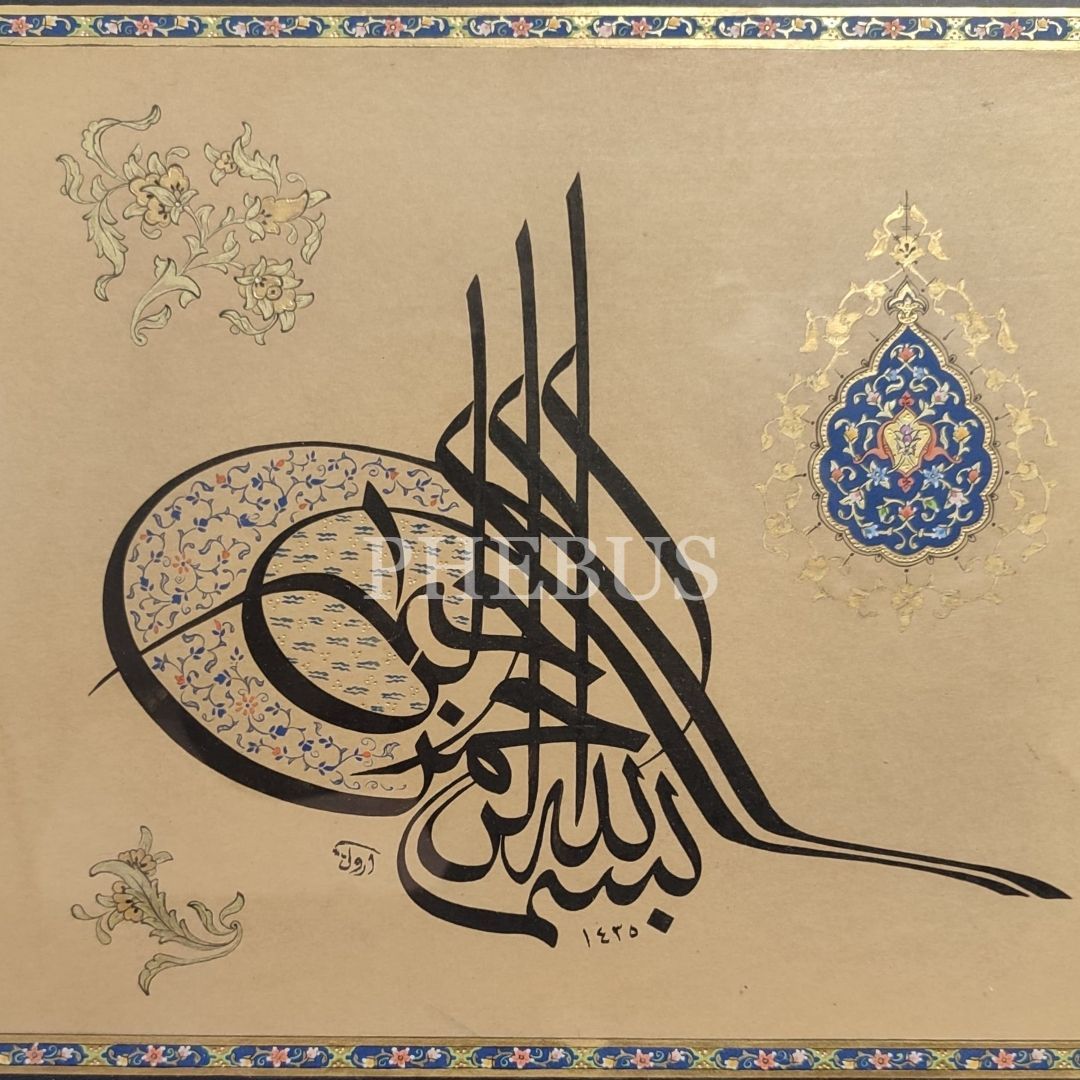 بسم الله الرحمن الرحيم
١٤٣٥
PHEBUS